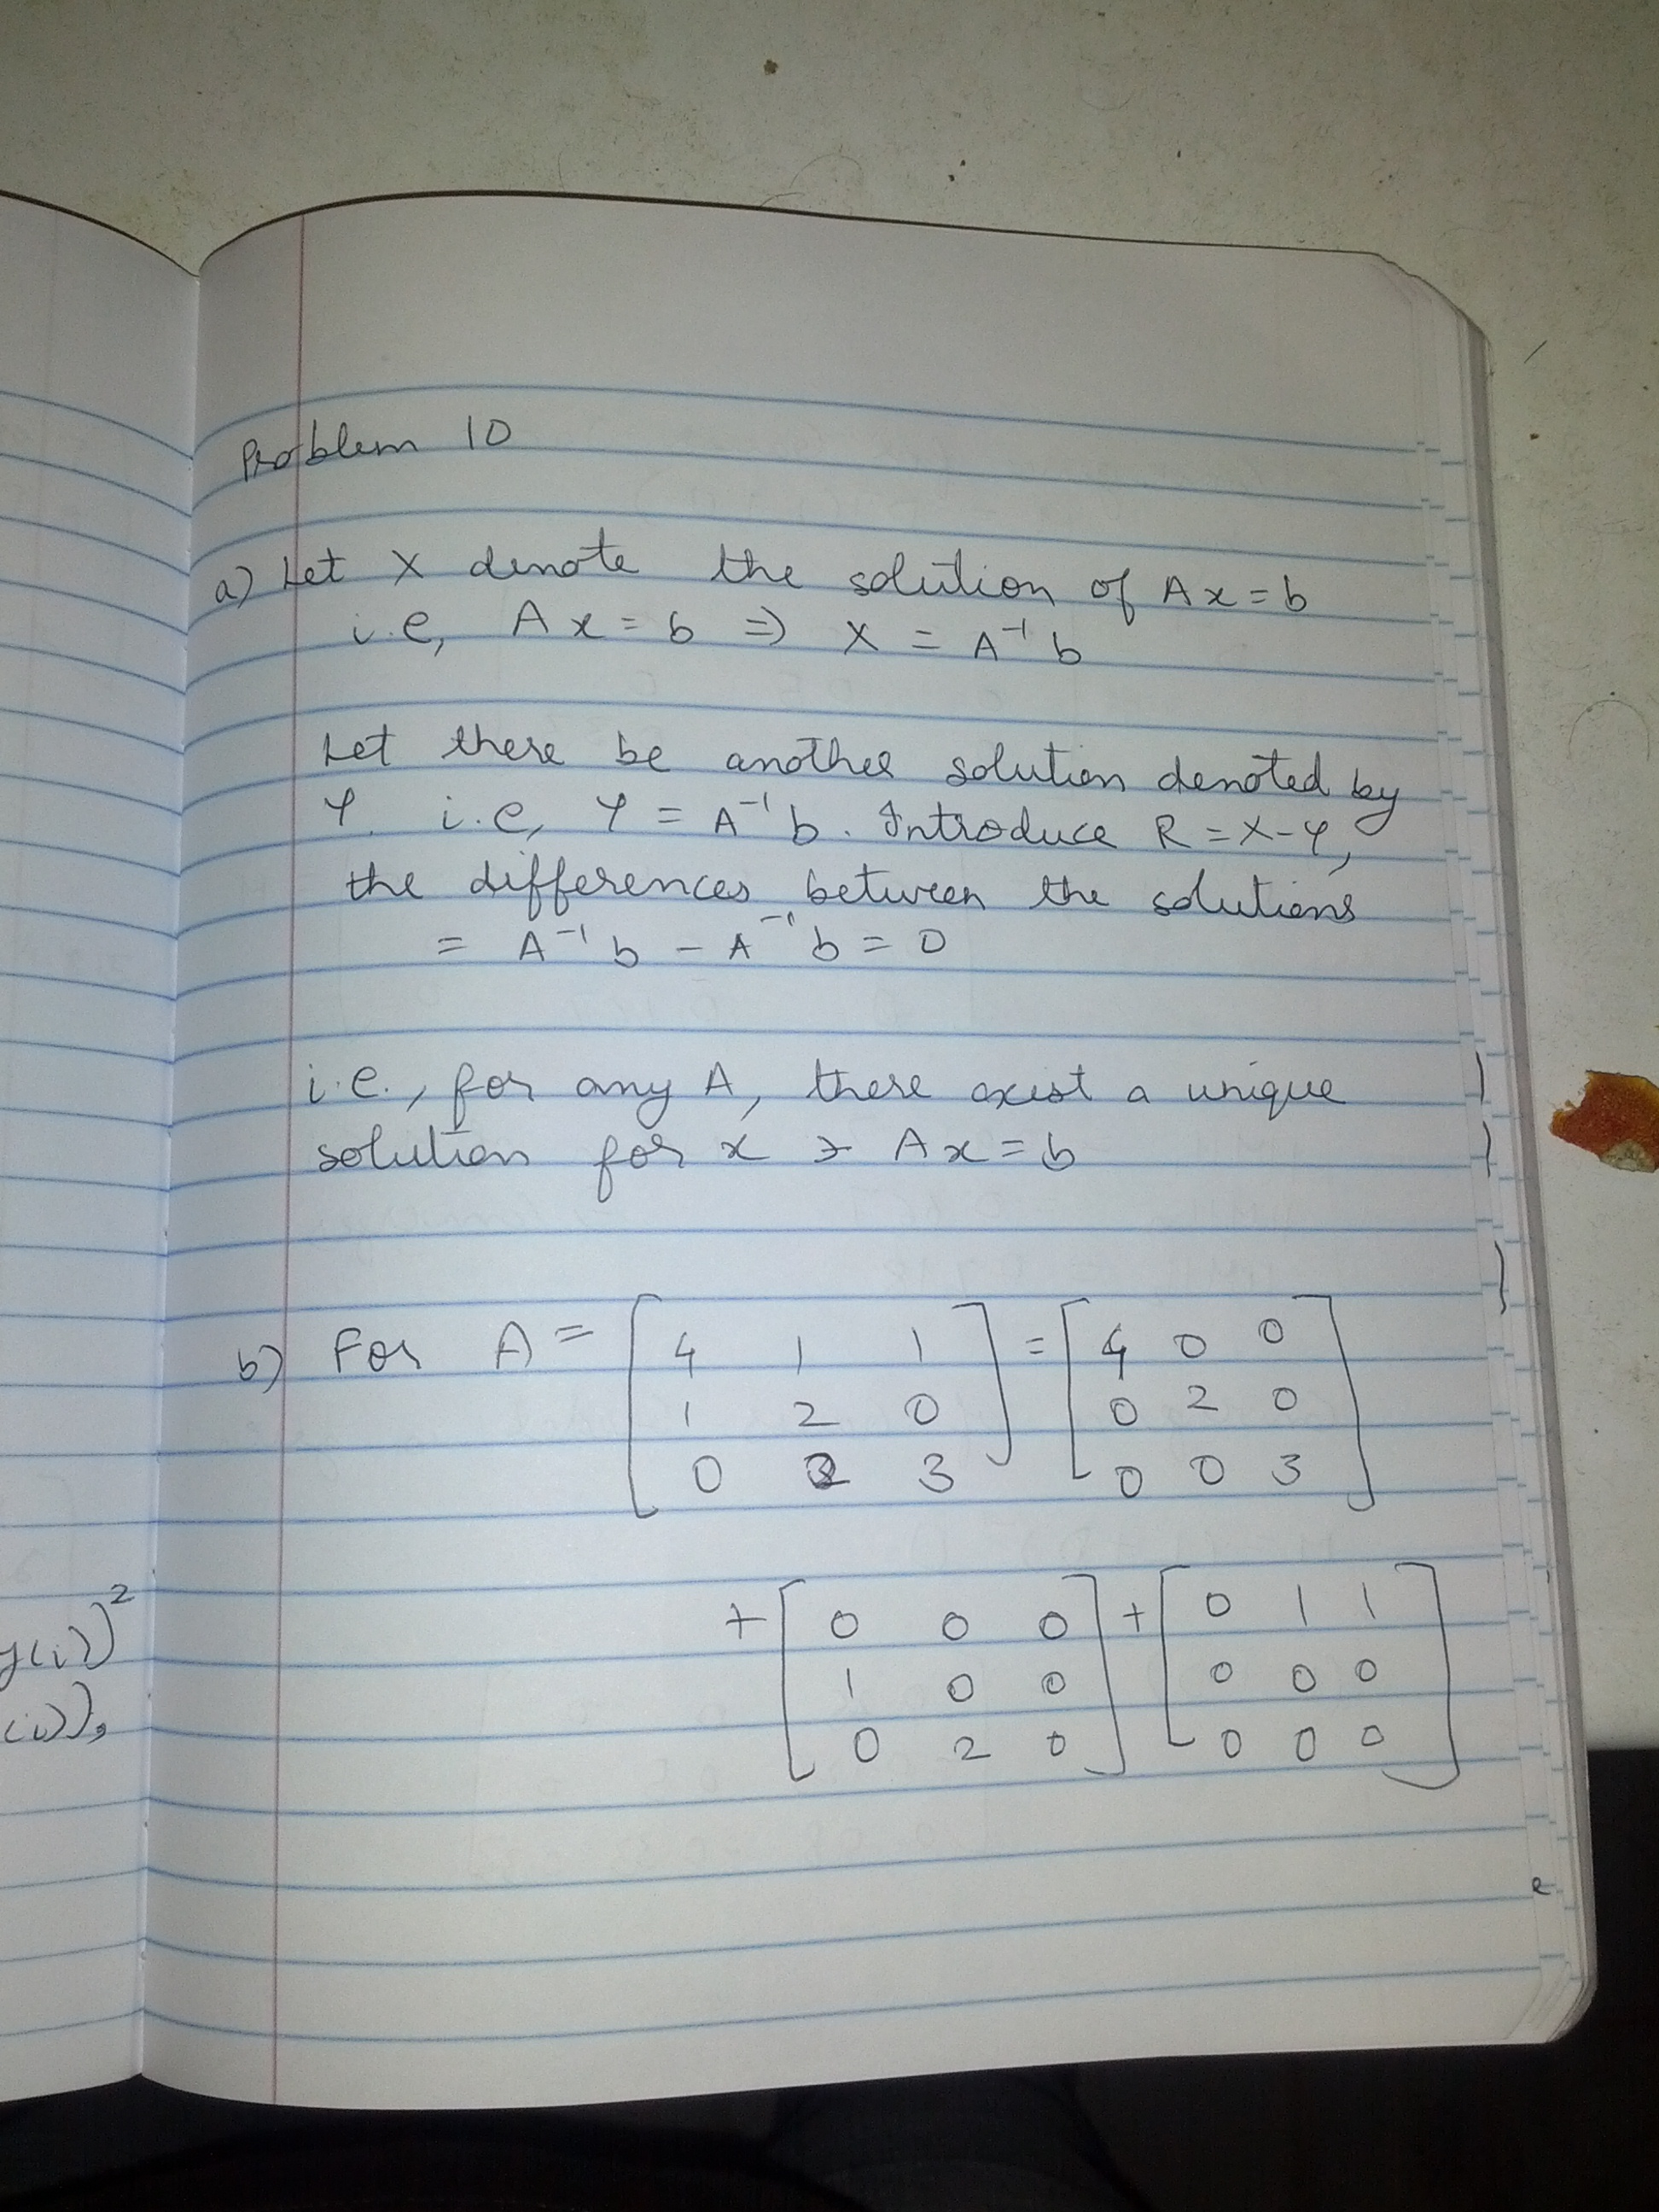 Problem 10
a) Let X denote the solution of Ax = b
i.e, Ax = b => X = A⁻¹ b
Let there be another solution denoted by
Y. i.e, Y = A⁻¹ b. Introduce R = X - Y,
the differences between the solutions
= A⁻¹ b - A⁻¹ b = 0
i.e., for any A, there exist a unique
solution for x ∋ Ax = b
b) For A = [4 1 1] = [4 0 0]
[1 2 0] [0 2 0]
[0 2 3] [0 0 3]
+ [0 0 0] + [0 1 1]
[1 0 0] [0 0 0]
[0 2 0] [0 0 0]
y(i))²
(i)),